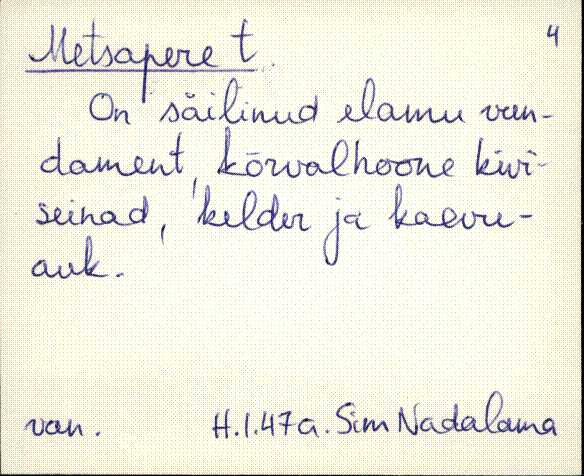 4
Metsapere t.
On säilinud elamu vun-
dament, kõrvalhoone kivi-
seinad, kelder ja kaevu-
auk.
van. H.I.47a. Sim Nadalama